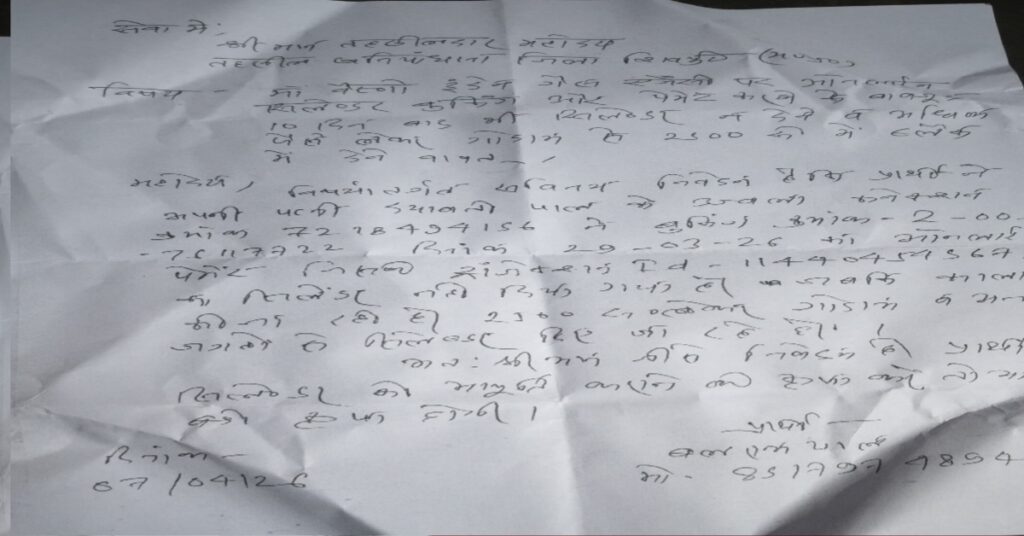 सेवा में,
श्रीमान तहसीलदार महोदय
तहसील बनियाधाना जिला शिवपुरी (म.प्र.)
विषय - मां इंडेन गैस एजेंसी पर ऑनलाईन
सिलेण्डर बुकिंग और पेमेंट करने के बावजूद
10 दिन बाद भी सिलेण्डर न देने व अधिक
पैसे लेकर गोदाम से 2500 की में ब्लैक
में देने बावत् ।
महोदय, विषयांतर्गत सविनय निवेदन है कि प्रार्थी ने
अपनी पत्नी पाल के कनेक्शन
क्रमांक 7218494156 से बुकिंग क्रमांक - 2-00
-76117722 दिनांक 29-03-26 का ऑनलाई
पेमेंट जिसकी ट्रांजेक्शन Id - 11440454567
का सिलेंडर नहीं दिया गया है। जबकि
की जा रही है 2500 लेकर गोडाम व अन्य
जगहों से सिलेण्डर दिए जा रहे है। ।
अतः श्रीमान से निवेदन है प्रार्थी
सिलेण्डर की आपूर्ति कराने की कृपा करें तो
बड़ी कृपा होगी ।
दिनांक - प्रार्थी -
07/04/26 पाल
मो. - 8517974894